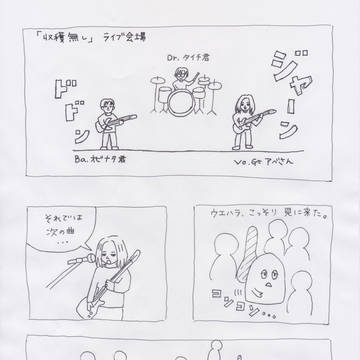 「収穫無し」ライブ会場
Dr.タイチ君
ドドン
ジャーン
Ba.ホピナタ君
Vo.Gt アベさん
それでは
次の曲
・・・
ウエハラ、こっそり見に来た。
コソコソ・・・